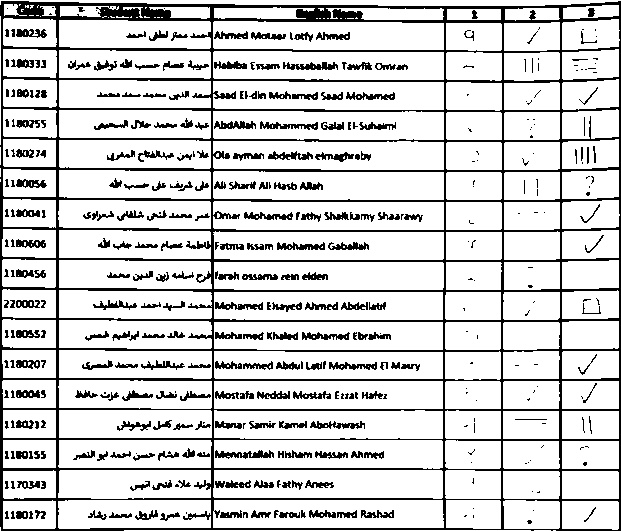 Code Student Name English Name 1 2 3
1180236 احمد ممتاز لطفى احمد Ahmed Motaer Lotfy Ahmed 9 ✓ □
1180333 حبيبة عصام حسب الله توفيق عمران Habiba Essam Hassaballah Tawfik Omran - |||
1180128 سعد الدين محمد سعد محمد Saad El-din Mohamed Saad Mohamed ✓ ✓
1180255 عبدالله محمد جلال السحيمى AbdAllah Mohammed Galal El-Suhaimi ? ||
1180274 علا ايمن عبدالفتاح المغربى Ola ayman abdelftah elmaghraby ✓ ||||
1180056 على شريف على حسب الله Ali Sharif Ali Hasb Allah || ?
1180041 عمر محمد فتحى شلقامى شعراوى Omar Mohamed Fathy Shalkkamy Shaarawy -- ✓
1180606 فاطمة عصام محمد جاب الله Fatma Issam Mohamed Gaballah ✓
1180456 فرح اسامه زين الدين محمد farah ossama zein elden
2200022 محمد السيد احمد عبداللطيف Mohamed Elsayed Ahmed Abdellatif ✓ □
1180552 محمد خالد محمد ابراهيم شمس Mohamed Khaled Mohamed Ebrahim
1180207 محمد عبداللطيف محمد المصرى Mohammed Abdul Latif Mohamed El Masry -- ✓
1180045 مصطفى نضال مصطفى عزت حافظ Mostafa Neddal Mostafa Ezzat Hafez ✓ ✓
1180212 منار سمير كامل ابوهواش Manar Samir Kamel AboHawash ||
1180155 منه الله هشام حسن احمد ابو النصر Mennatallah Hisham Hassan Ahmed ✓ ?
1170343 وليد علاء فتحى انيس Waleed Alaa Fathy Anees
1180172 ياسمين عمرو فاروق محمد رشاد Yasmin Amr Farouk Mohamed Rashad ✓